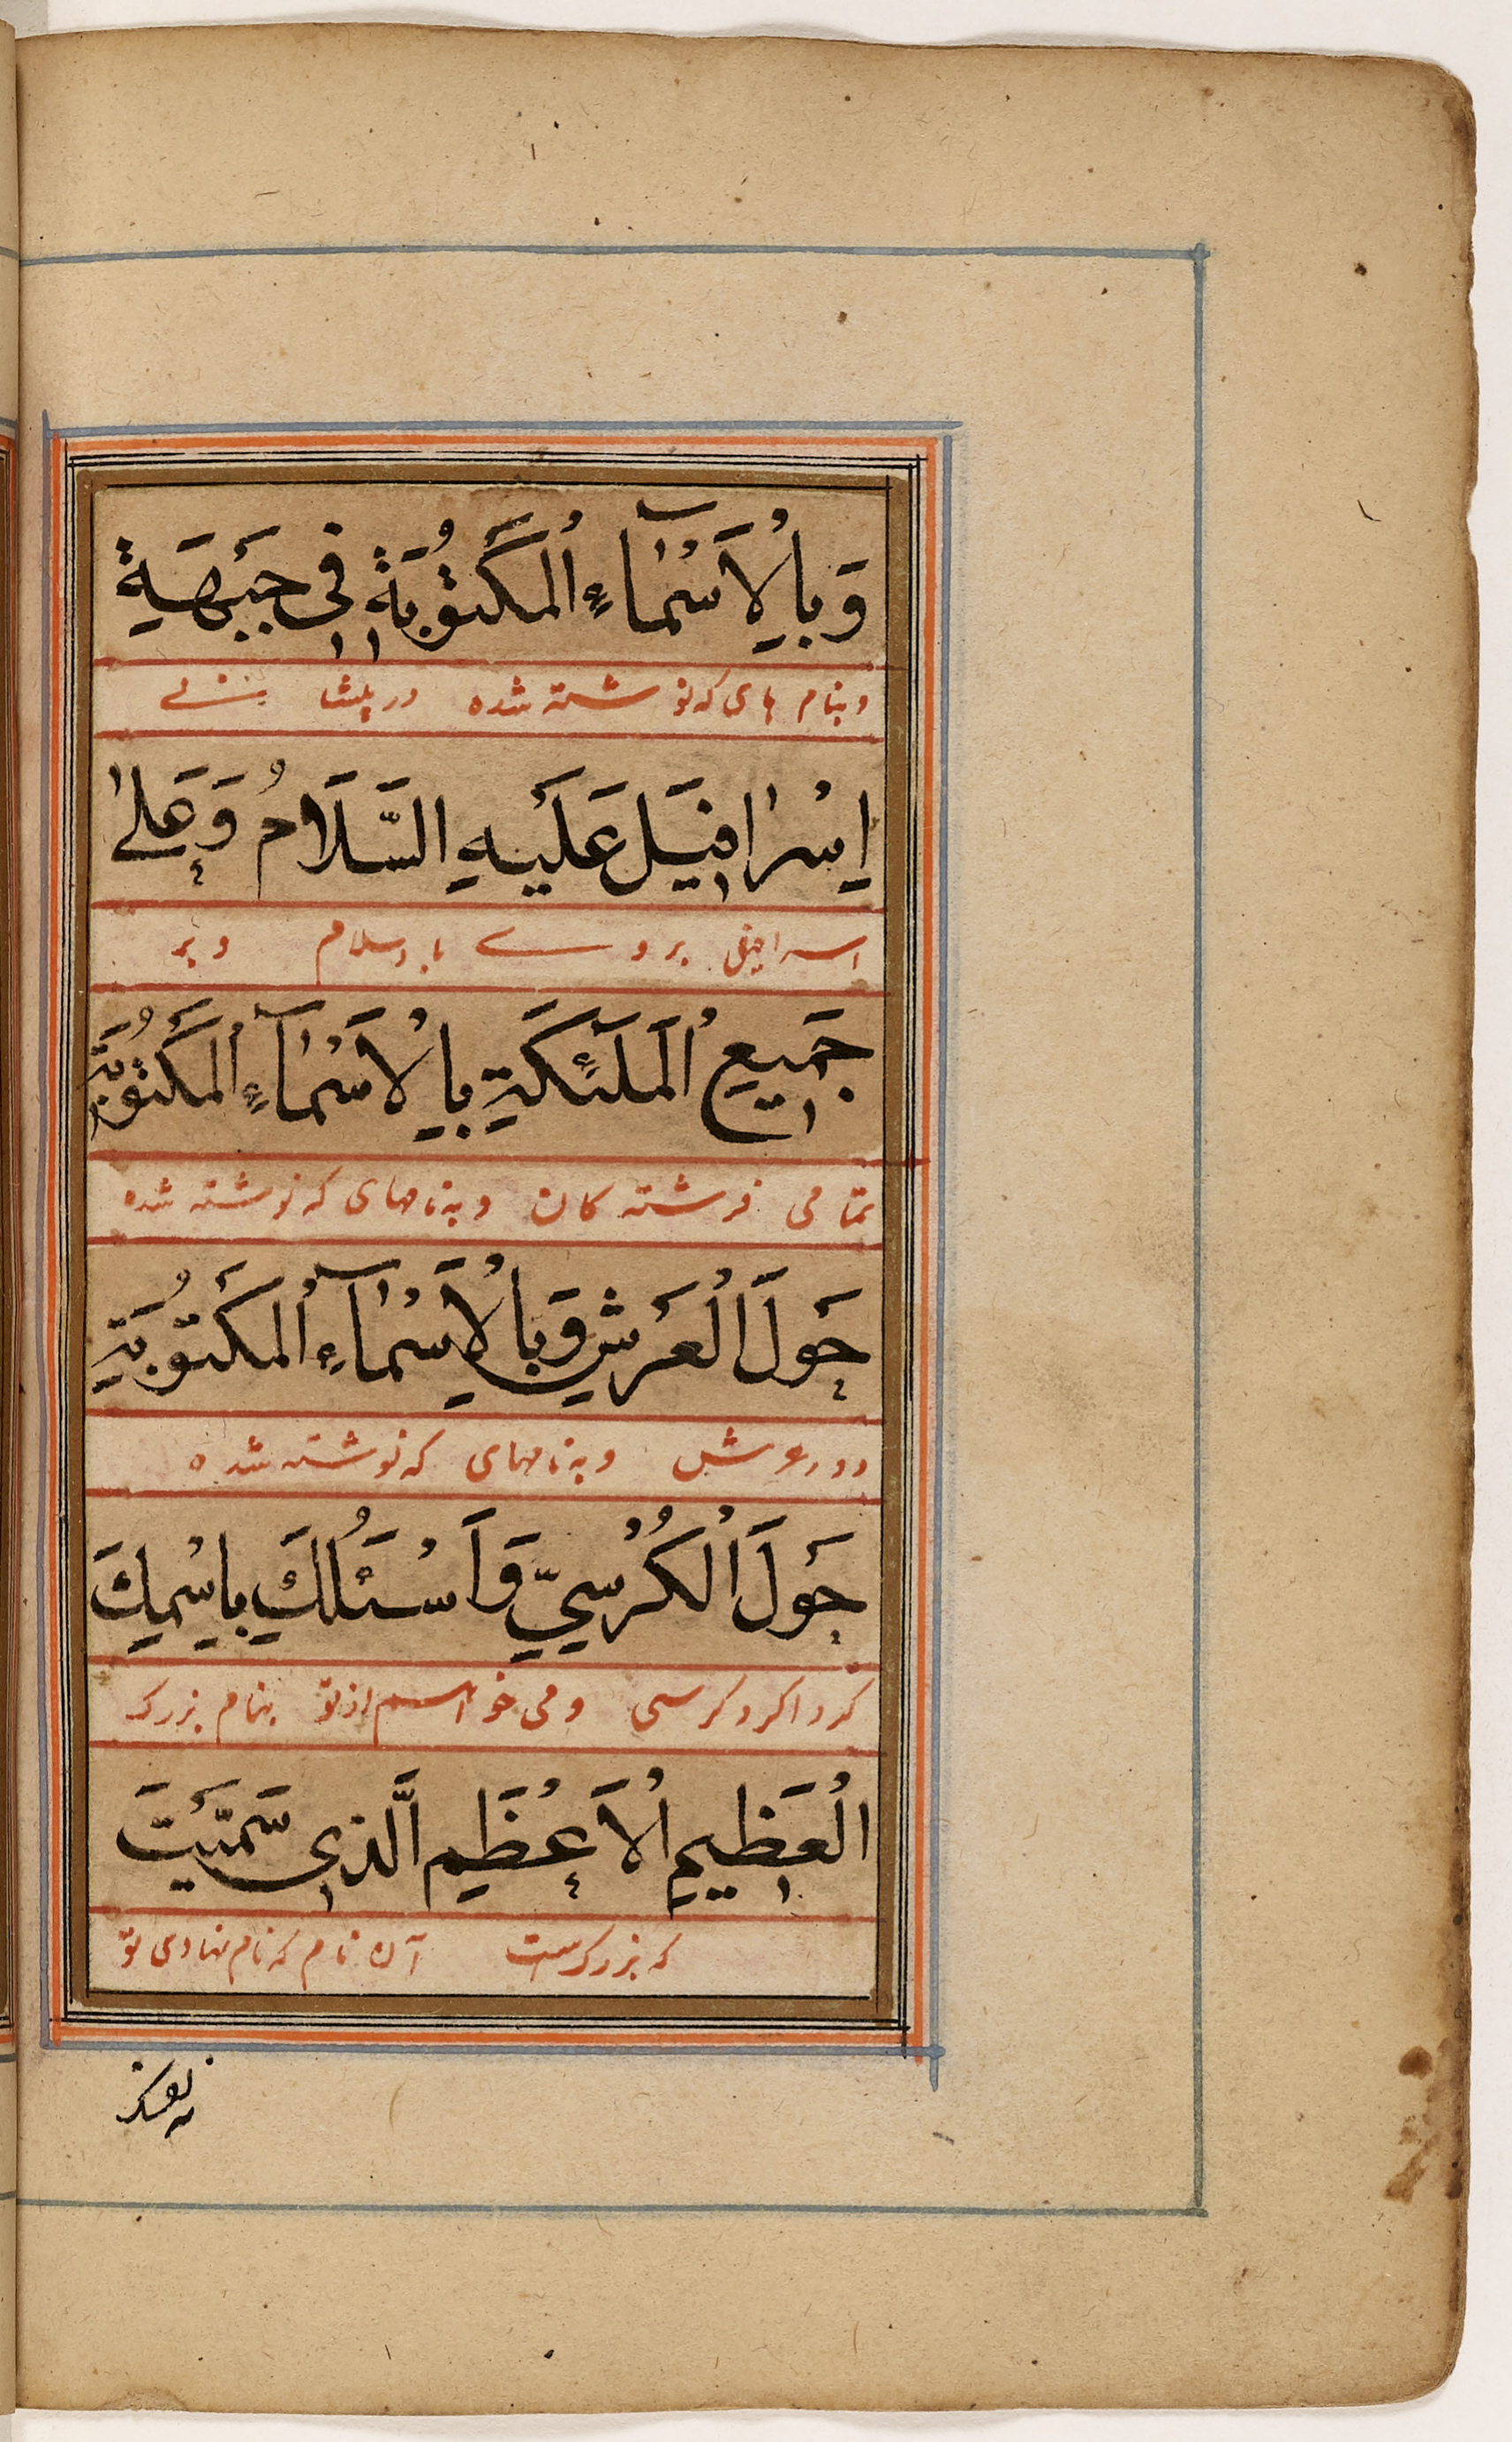 وَبِالْاَسْمَآءِ الْمَكْتُوْبَةِ فِي جَبْهَةِ
وبنام های که نوشته شده در پیشانی
اِسْرَافِيْلَ عَلَيْهِ السَّلَامُ وَعَلٰى
اسرافیل بروے باد سلام وبر
جَمِيْعِ الْمَلٰٓئِكَةِ بِالْاَسْمَآءِ الْمَكْتُوْبَةِ
تمامی فرشته کان وبه نامهای که نوشته شده
حَوْلَ الْعَرْشِ وَبِالْاَسْمَآءِ الْمَكْتُوْبَةِ
دور عرش وبه نامهای که نوشته شده
حَوْلَ الْكُرْسِيِّ وَاَسْئَلُكَ بِاسْمِكَ
کرد اکرد کرسی ومی خواسم از تو بنام بزرک
الْعَظِيْمِ الْاَعْظَمِ الَّذِي سَمَّيْتَ
که بزرکرست آن نام که نام نهادی تو